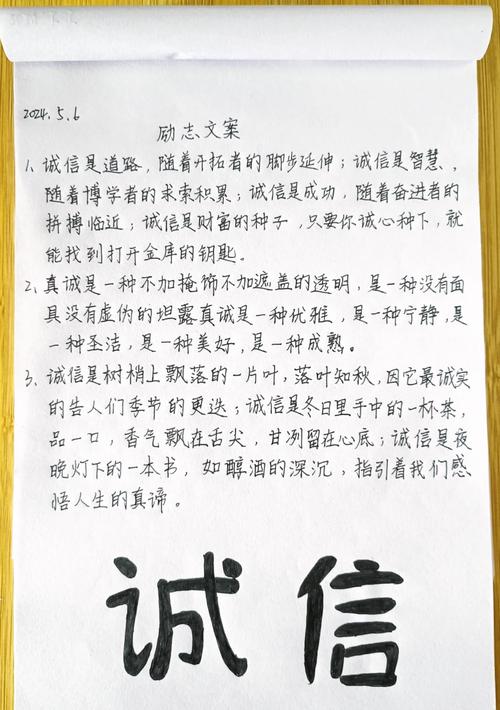 2024.5.6
励志文案
1、诚信是道路，随着开拓者的脚步延伸；诚信是智慧、，
随着博学者的求索积累；诚信是成功，随着奋进者的
拼搏临近；诚信是财富的种子，只要你诚心种下，就
能找到打开金库的钥匙。
2、真诚是一种不加掩饰不加遮盖的透明，是一种没有面
具没有虚伪的坦露真诚是一种优雅，是一种宁静，是
一种圣洁，是一种美好，是一种成熟。
3、诚信是树梢上飘落的一片叶，落叶知秋，因它最诚实
的告人们季节的更迭；诚信是冬日里手中的一杯茶，
品一口，香气飘在舌尖，甘冽留在心底；诚信是夜
晚灯下的一本书，如醇酒的深沉，指引着我们感
悟人生的真谛。
诚信